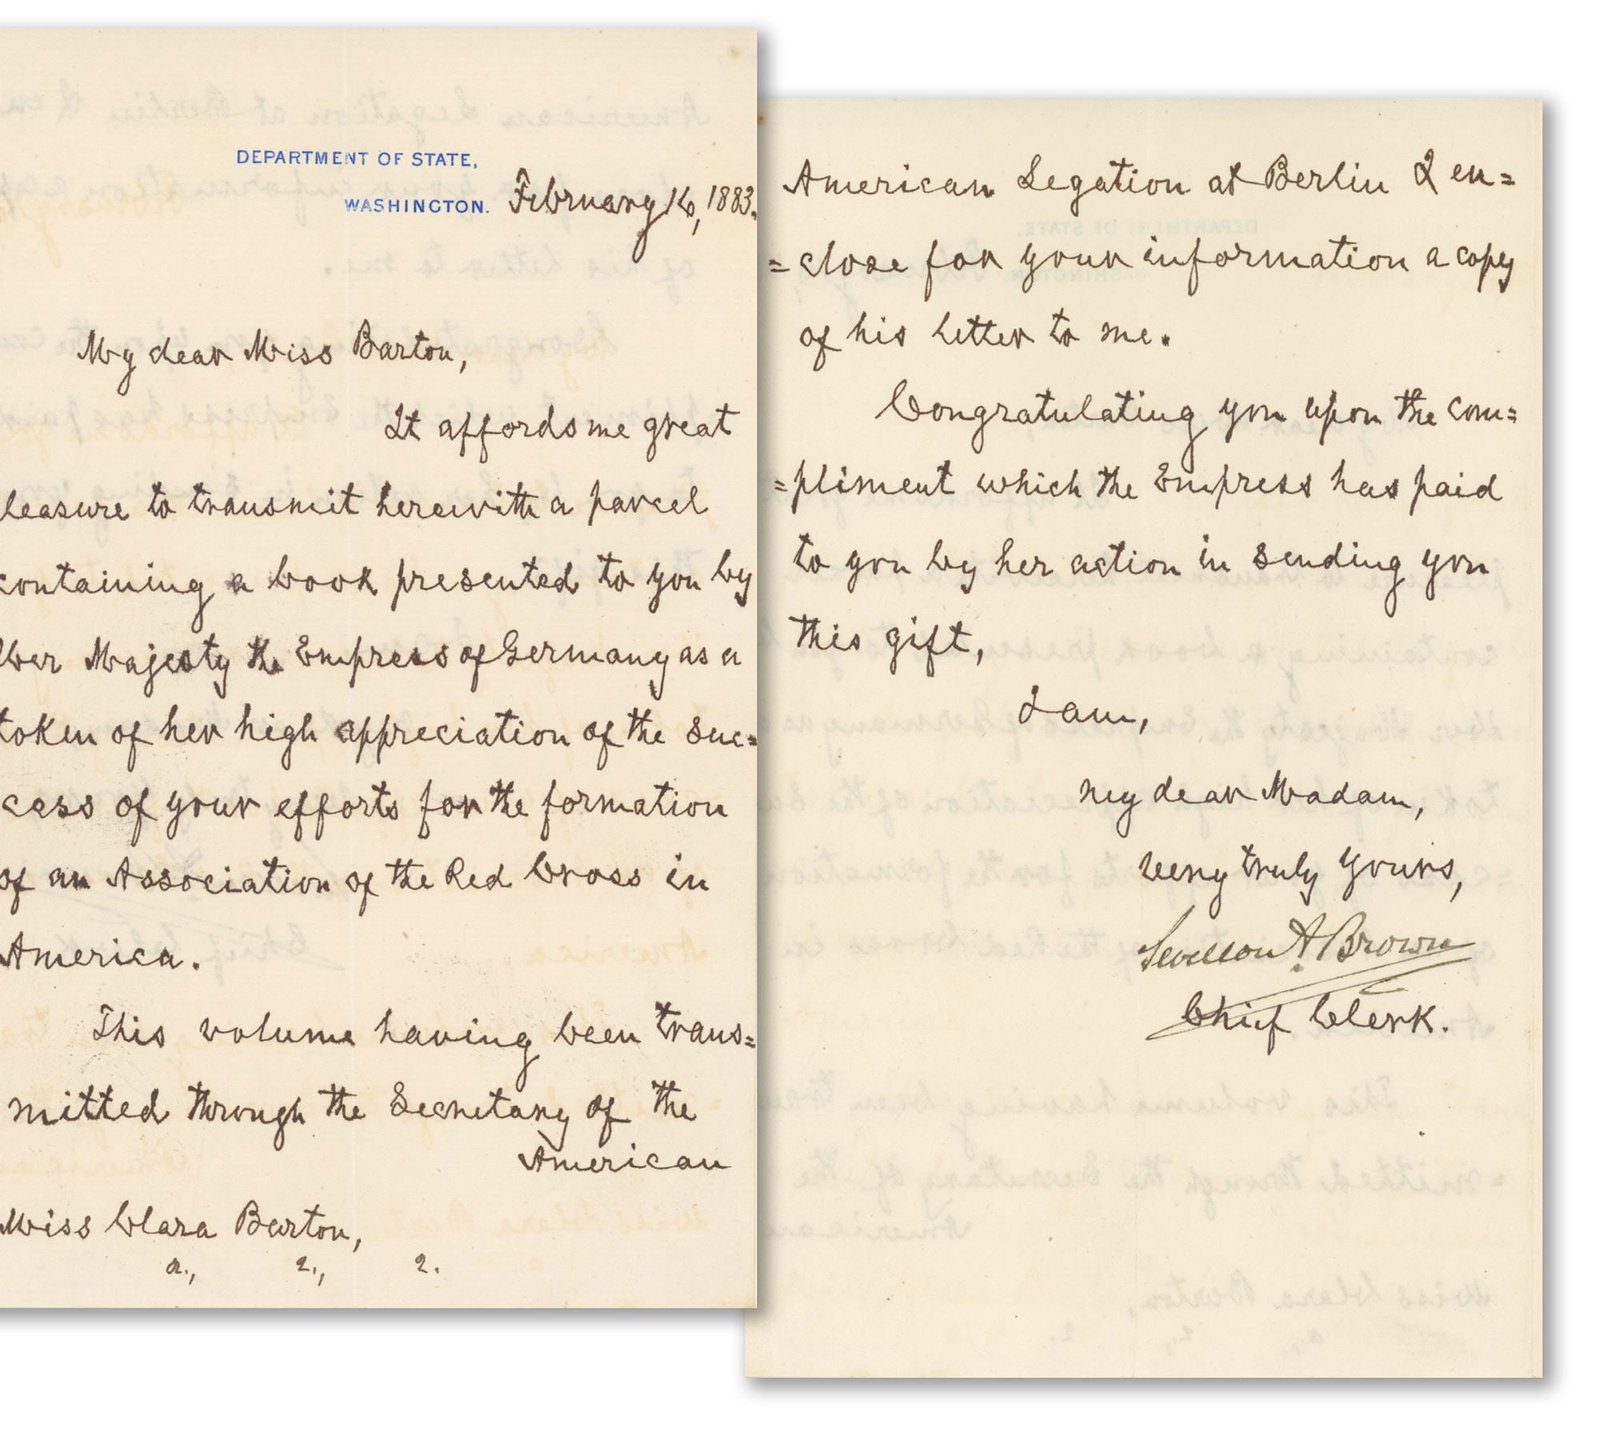 DEPARTMENT OF STATE,
WASHINGTON. February 16, 1883.
My dear Miss Barton,
It affords me great
leasure to transmit herewith a parcel
containing a book presented to you by
Her Majesty the Empress of Germany as a
token of her high appreciation of the suc=
cess of your efforts for the formation
of an Association of the Red Cross in
America.
This volume having been trans=
mitted through the Secretary of the
American
Miss Clara Barton,
&., &., &.
American Legation at Berlin I en=
=close for your information a copy
of his letter to me.
Congratulating you upon the com=
=pliment which the Empress has paid
to you by her action in sending you
this gift,
I am,
my dear Madam,
very truly yours,
Sevellon A. Brown
Chief Clerk.